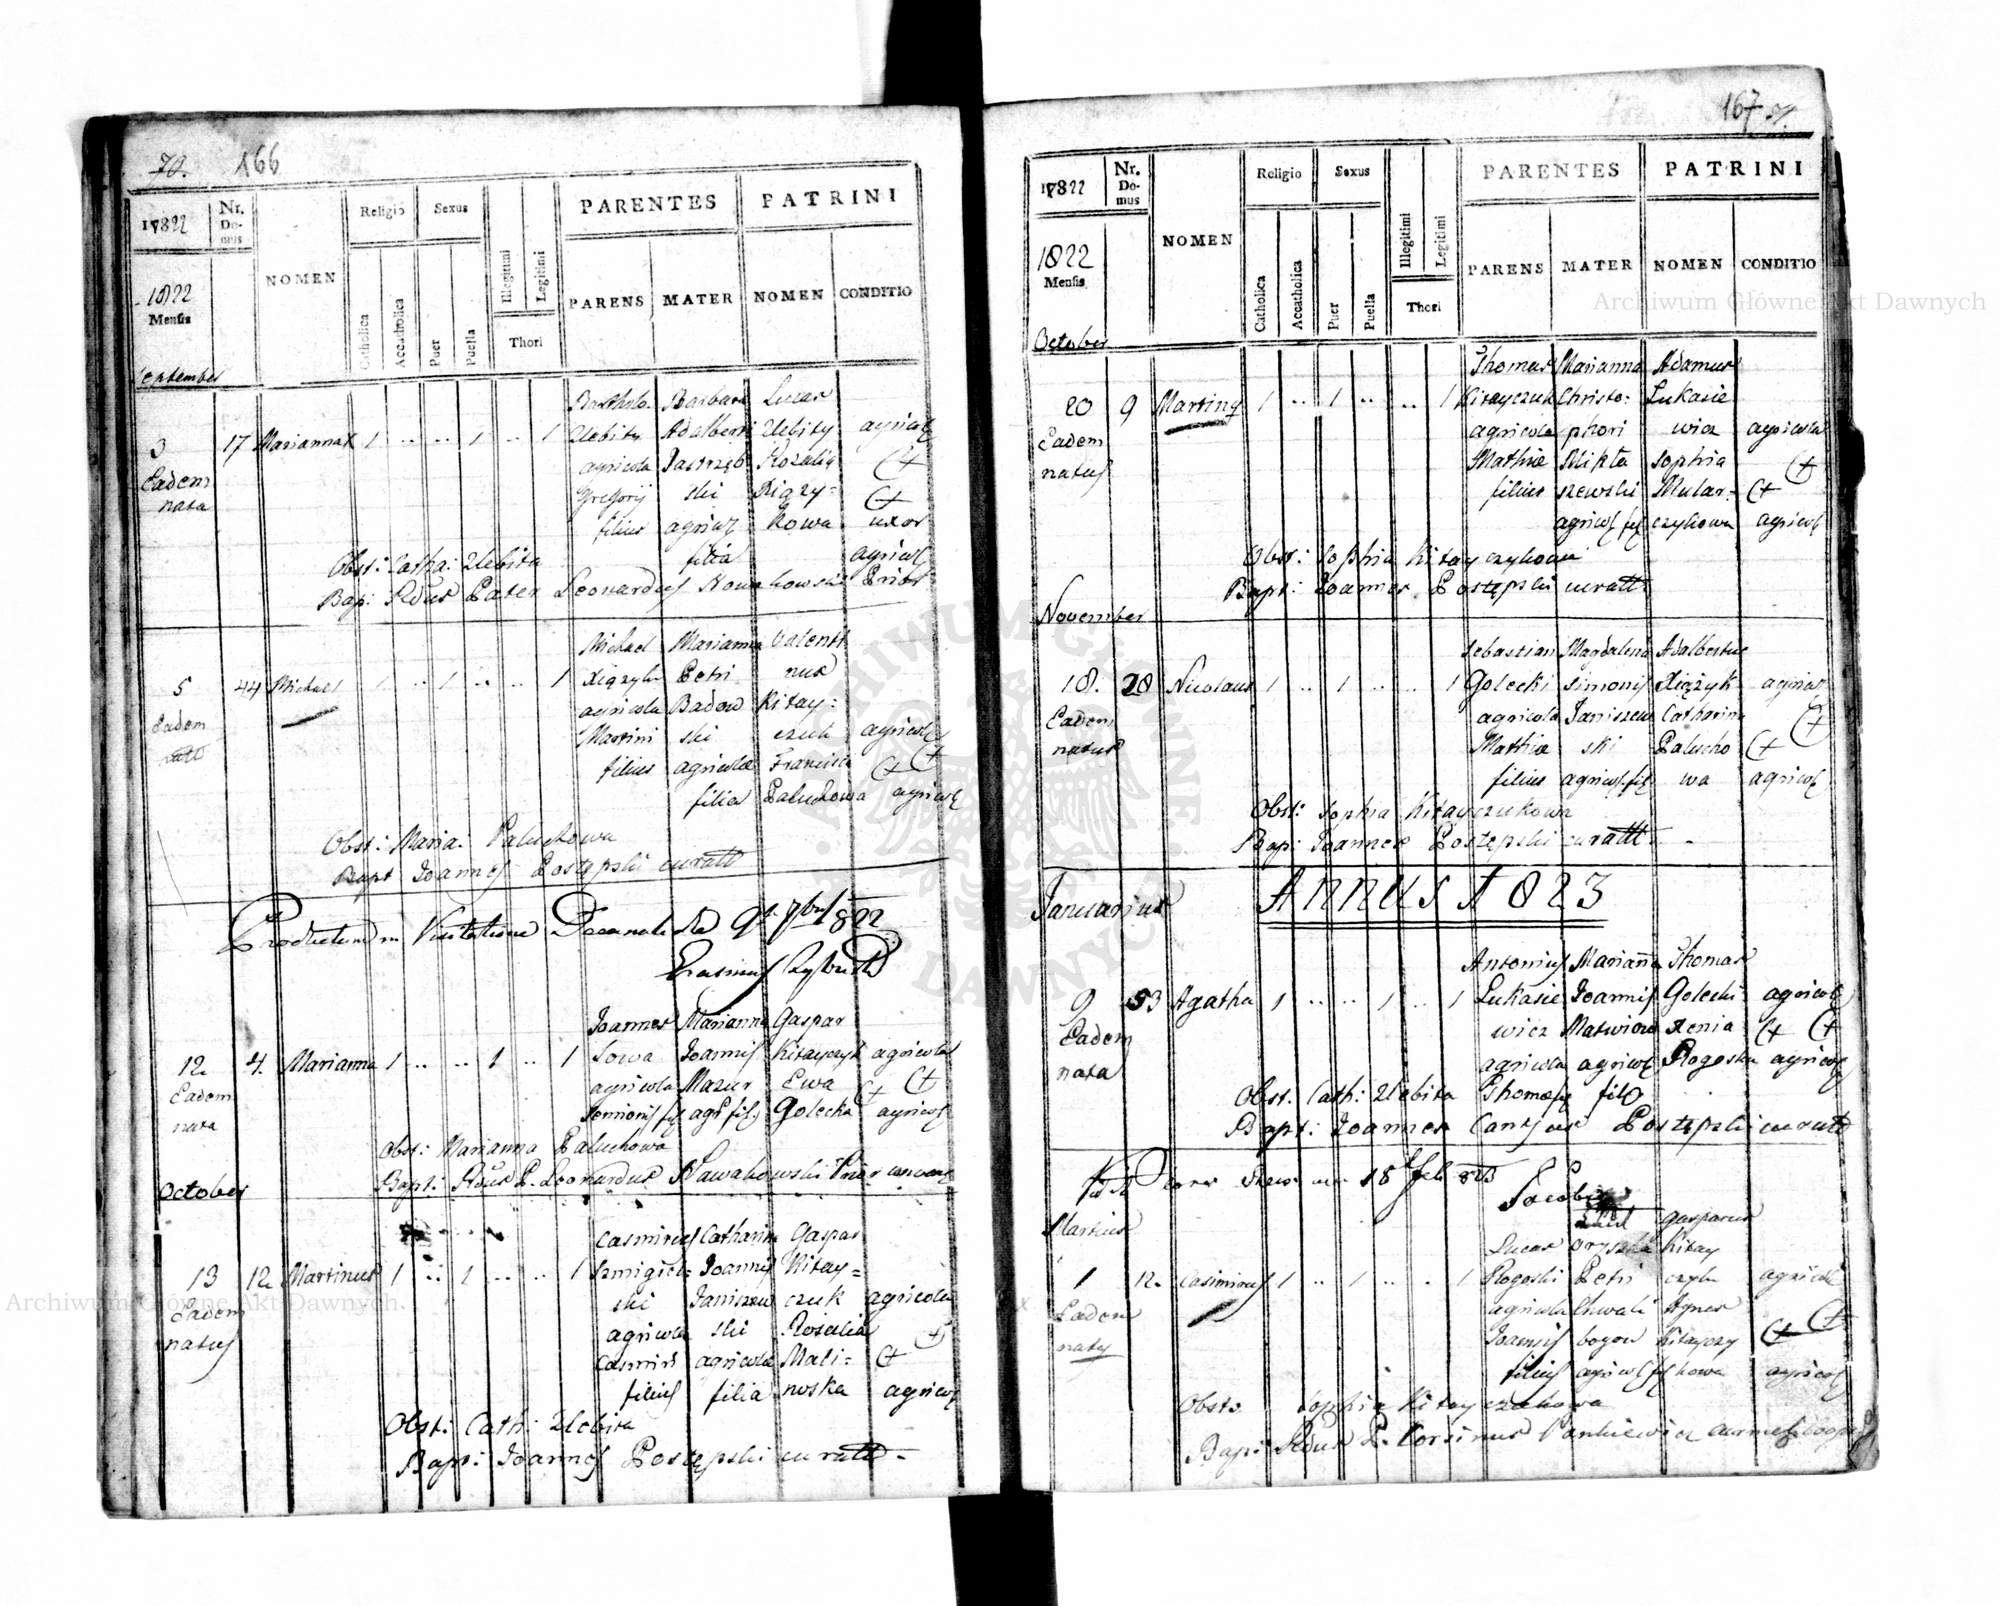 70. 166
1822 Nr. Domus NOMEN Religio Sexus PARENTES PATRINI
1822 Mensis Catholica Accatholica Puer Puella Illegitimi Legitimi Thori PARENS MATER NOMEN CONDITIO
September
Bartholo: Barbara Lucas
3 17 Marianna 1 .. .. 1 .. 1 Zlebity Adalberti Zlebity agricol
Eadem agricola Jastrzęb Rozalia (+
nata Gregorij ski Xiązy= (+
filius agricol kowa uxor
filia agricol
Obst: Catha: Zlebita
Bap: Rdus Pater Leonardus Nowakowski Prior
Michael Marianna Valenti
5 44 Michael 1 .. 1 .. .. 1 Xiązyk Petri nus
Eadem agricola Badow Kitay=
Martini ski czuk agricola
filius agricolæ Francisca (+ (+
filia Paluchowa agricol
Obst: Maria: Paluchowa
Bapt Joannes Postępski curatt
Productum in Visitatione Decanali die 9 7bris 1822
Erasmus
Joannes Marianna Gaspar
12 4. Marianna 1 .. .. 1 .. 1 Sowa Joannis Kitayczyk agricola
Eadem agricola Mazur Ewa (+ (+
nata fil agr fil Golecka agricol
Obst: Marianna Paluchowa
Bapt: Rdus P. Leonardus Nawakowski Prior
October
Casimirus Catharina Gaspar
13 12 Martinus 1 .. 1 .. .. 1 Szmigiel= Joannis Kitay=
Eadem ski Janiszew czuk agricola
natus agricola ski Rosalia (+)
Casimiri agricolæ Mali= (+
filius filia noska agricol
Obst: Cath: Zlebita
Bapt: Joannes Postępski curatt
167 71.
1822 Nr. Domus NOMEN Religio Sexus PARENTES PATRINI
1822 Mensis Catholica Accatholica Puer Puella Illegitimi Legitimi Thori PARENS MATER NOMEN CONDITIO
October
Thomas Marianna Adamus
20 9 Martinq 1 .. 1 .. .. 1 Kitayczuk Christo: Lukasie
Eadem agricola phori wicz agricola
natus Mathiæ Mikta Sophia (+)
filius szewski Mular= (+
agricol fil czykowa agricol
Obst: Sophia Kitayczykowa
Bapt: Joannes Postępski curatt
November
Sebastian Magdalena Adalbertus
18. 28 Nicolaus 1 .. 1 .. .. 1 Golecki Simonis Xiążyk agricol
Eadem agricola Janiszew Catharina (+)
natus Mathiæ ski Palucho (+
filius agricol fil wa agricol
Obst: Sophia Kitayczukowa
Bap: Joannes Postępski curatt
Januarius Annus 1823
Antonius Marianna Thomas
9 53 Agatha 1 .. .. 1 .. 1 Lukasie Joannis Golecki agricol
Eadem wicz Xenia (+ (+
nata agricola agricol Rogoska agricol
Obst. Cath: Zlebita Thomæ fil
Bapt: Joannes Cantius Postępski curatt
18 Feb 823
Martius Jacobi
gasparus
Lucas Kitay
1 12. Casimirus 1 .. 1 .. .. 1 Rogoski Petri czyk agricol
Eadem agricola Chwali Agnes (+)
natus Joannis bogow Kitayczy (+
filius agricol fil kowa agricol
Obst: Sophia Kitayczukowa
Bap: Rdus P. Corsinus Pankiewicz
Archiwum Główne Akt Dawnych
Archiwum Główne Akt Dawnych
ARCHIWUM GŁÓWNE AKT DAWNYCH